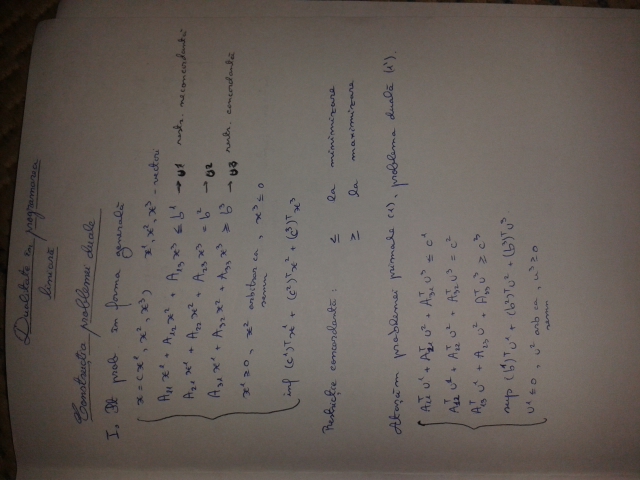 Dualitate în programarea
liniară
Construcția problemei duale
I. Pt prob în forma generală
x = (x¹, x², x³) x¹, x², x³ - vectori
A₁₁x¹ + A₁₂x² + A₁₃x³ ≤ b¹ → u1 restr. neconcordantă
A₂₁x¹ + A₂₂x² + A₂₃x³ = b² → u2
A₃₁x¹ + A₃₂x² + A₃₃x³ ≥ b³ → u3 restr. concordantă
x¹ ≥ 0, x² arbitrar ca semn, x³ ≤ 0
inf (c¹)ᵀx¹ + (c²)ᵀx² + (c³)ᵀx³
Restricție concordantă: ≤ la minimizare
≥ la maximizare
Atașăm problemei primale (1), problema duală (1').
A₁₁ᵀu¹ + A₂₁ᵀu² + A₃₁ᵀu³ ≤ c¹
A₁₂ᵀu¹ + A₂₂ᵀu² + A₃₂ᵀu³ = c²
A₁₃ᵀu¹ + A₂₃u² + A₃₃ᵀu³ ≥ c³
sup (b¹)ᵀu¹ + (b²)ᵀu² + (b³)ᵀu³
u¹ ≤ 0, u² arb ca semn, u³ ≥ 0